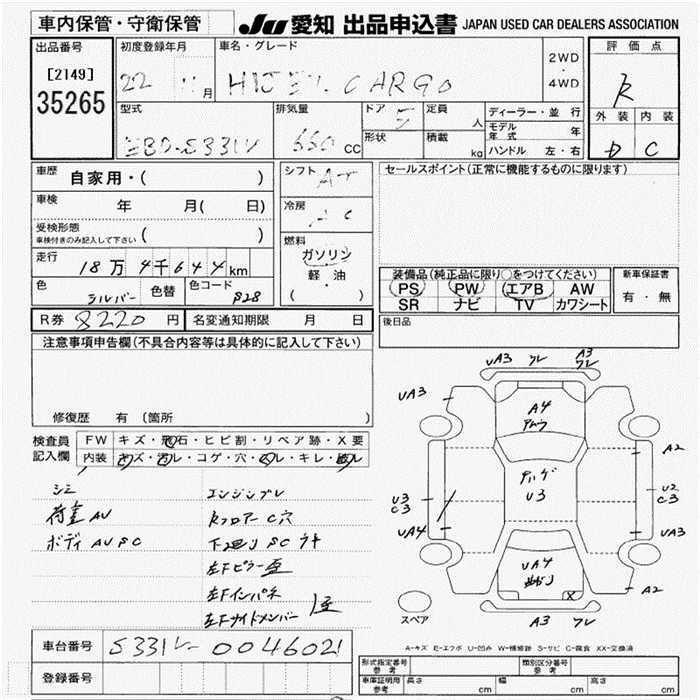 車内保管・守衛保管
JU 愛知 出品申込書 JAPAN USED CAR DEALERS ASSOCIATION
出品番号
[2149]
35265
初度登録年月
22 11月
車名・グレード
HIJET CARGO
2WD
・
4WD
評価点
R
外装 内装
D C
型式
EBD-S331V
排気量
660 cc
ドア 5
形状
定員 人
積載 kg
ディーラー・並行
モデル年式 年
ハンドル 左・右
車歴 自家用・( )
車検 年 月( 日)
受検形態
車検付きのみ記入して下さい ( )
走行 18万 4千644km
色 シルバー 色替 色コード S28
シフト AT
冷房 AC
燃料
ガソリン
軽油
( )
セールスポイント(正常に機能するものに限ります)
装備品(純正品に限り○をつけてください)
PS PW エアB AW
SR ナビ TV カワシート
新車保証書
有・無
R券 8220円 名変通知期限 月 日
後日品
注意事項申告欄(不具合内容等は具体的に記入して下さい)
修復歴 有 (箇所 )
検査員
記入欄
FW キズ・飛石・ヒビ割・リペア跡・X要
内装 キズ・汚レ・コゲ・穴・スレ・キレ・
シミ
荷室 AU
ボディ AUSC
エンジンブレ
Rフロアー C穴
下廻り SC
左Fピラー 歪
左Fインパネ
左Fサイドメンバー 歪
UA3 クレ A3 クレ
UA3
A4
A2
U3
C3
U3
U2
C3
UA4
UA3
UA4
曲がり
X
A2
スペア
A3 クレ
A-キズ E-エクボ U-凹み W-補修跡 S-サビ C-腐食 XX-交換済
車台番号 S331V-0046021
登録番号
形式指定番号
参考
類別区分番号
参考
車庫証明用
参考
長さ cm 幅 cm 高さ cm